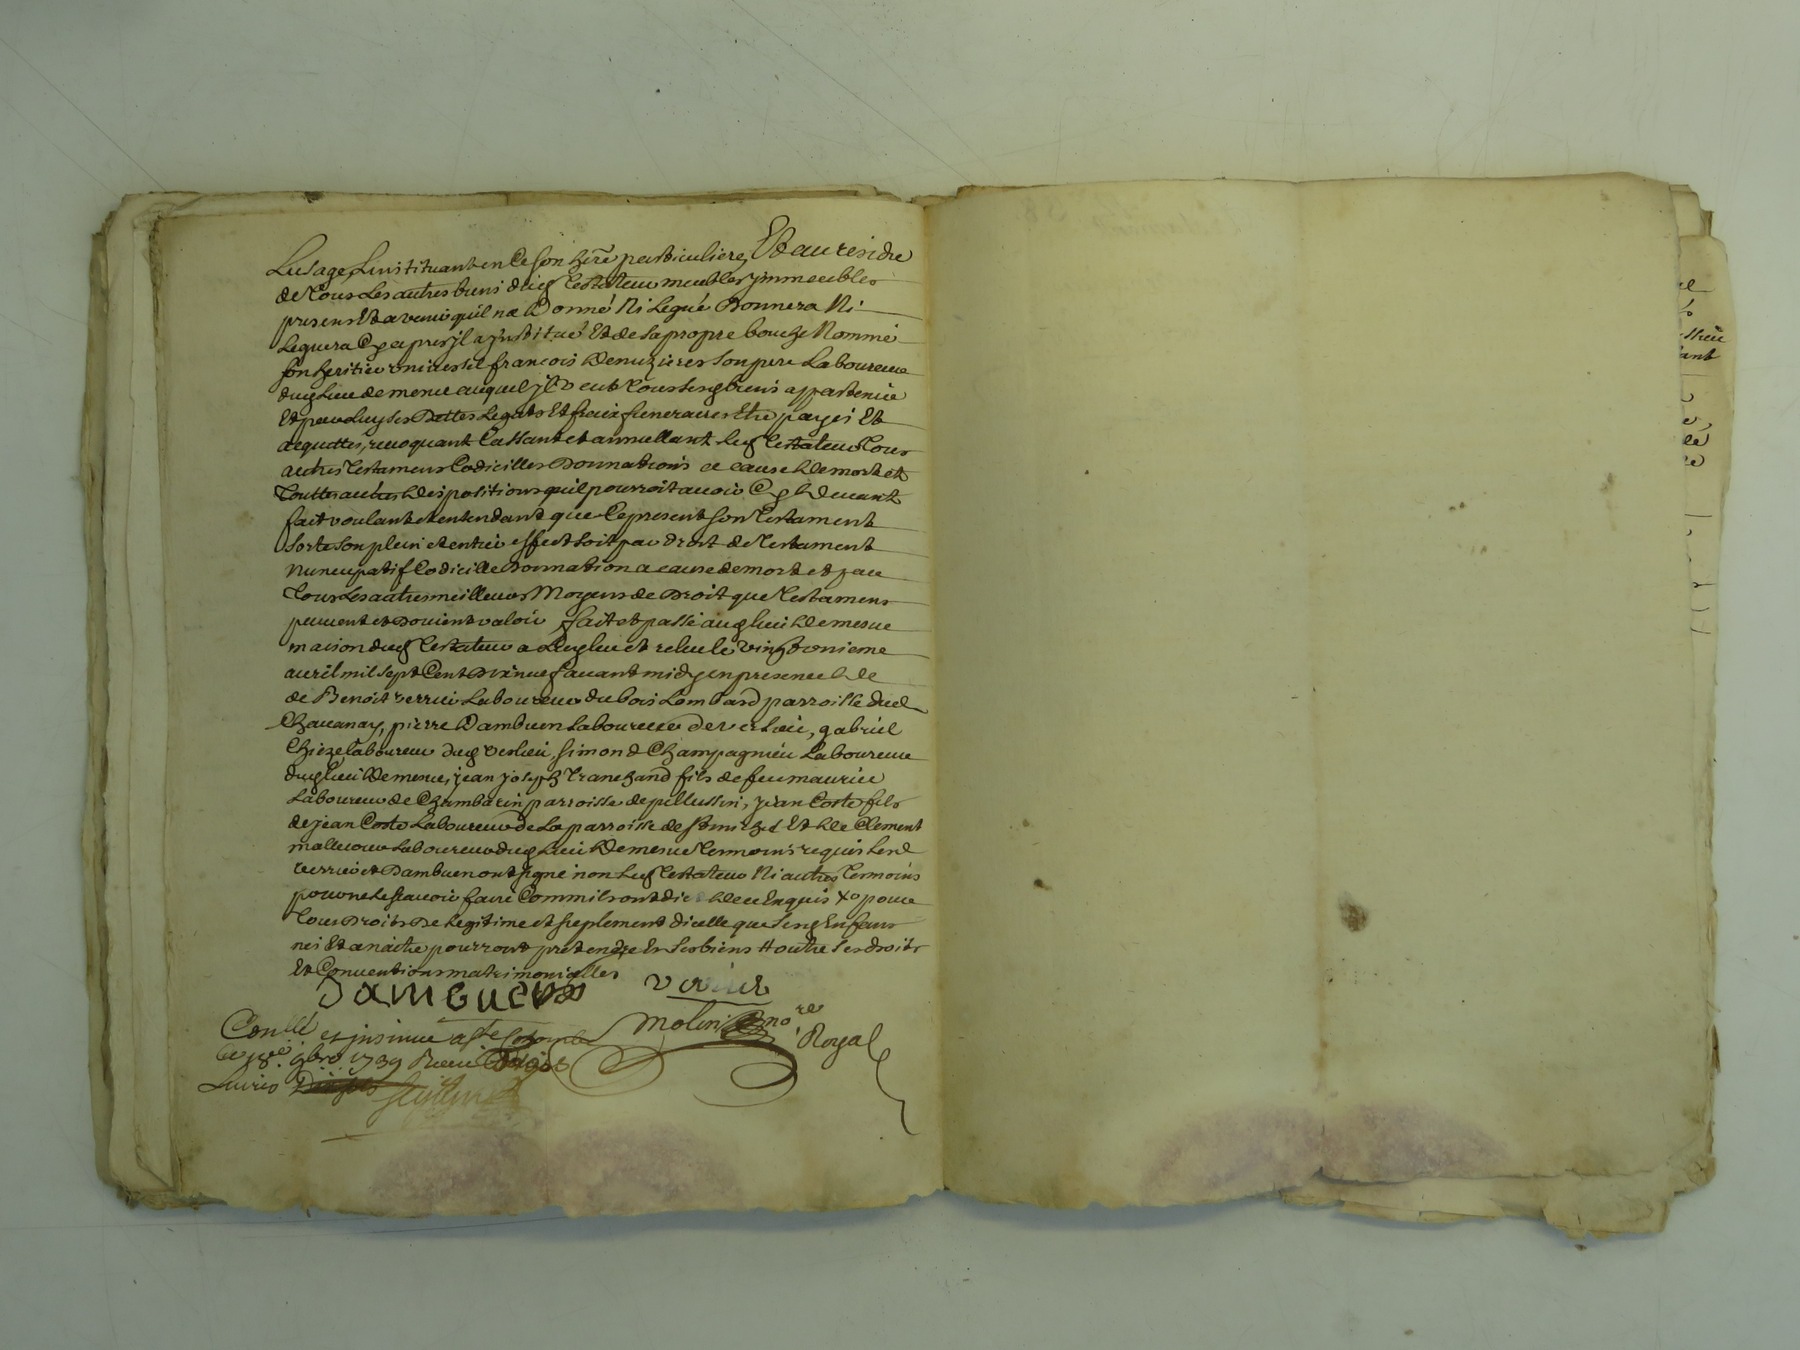 Lusage, Linstituant en Ce son here particuliere, Et au residu
de Tous Les autres biens dud Testateur meubles ymmeubles
presens Et avenir quil na Donné Ni Legué Donnera Ni
Leguera Cy apres jl a Justitué Et de sa propre bouche Nommé
son heritier universel françois Denuzieres son pere Laboureur
dud Lieu de meme auquel jl veut Tous sesd biens appartenir
Et par Luy ses Dettes Legats Et fraix funeraires Etre payes Et
acquittes, revoquant Cassant et annullant led Testateur Tous
autres Testamens Codicilles Donnations a cause De mort et
Touttes autres Dispositions quil pourroit avoir Cy Devant
fait voulant et entendant que Le present son Testament
sorte son plein et entier effect soit par droit de Testament
Nuncupatif Codicille Donnation a cause de mort et par
Tous Les autres meilleurs Moyens de Droit que Testamens
peuvent et Doivent valoir fait et passé aud lieu De mesne
maison dud Testateur a Leglue et releu le vingt onieme
avril mil sept Cent Dixneuf avant midy en presence De
de Benoit verrier Laboureur du bois Lombard parroisse dud
Chavanay, pierre Dambuen Laboureur de verlieu, gabriel
Chieze laboureur dud verlieu, simon de Champagnieu Laboureur
dud lieu De mesne, jean joseph Tranchand fils de feu maurice
Laboureur de Chambarin parroisse de pellussin, jean Coste fils
de jean Coste Laboureur de La parroisse de st michel Et De Clement
Laboureur dud Lieu De mesne Temoins requis Lesd
verrier et Dambuen ont signé non Led Testateur Ni autres Temoins
pour ne Le scavoir faire Comm ils ont dit De ce Enquis Xo pour
Tous Droits De Legitime et supplement dicelle que sesd Enfans
nés Et a naitre pourront pretendre En ses biens Houtre ses droits
Et Conventions matrimonialles
Damguen verier
Conllé et jnsinué a Ste Colombe Molin nore Royal
Le 18e 9bre 1739 Receu
Livres